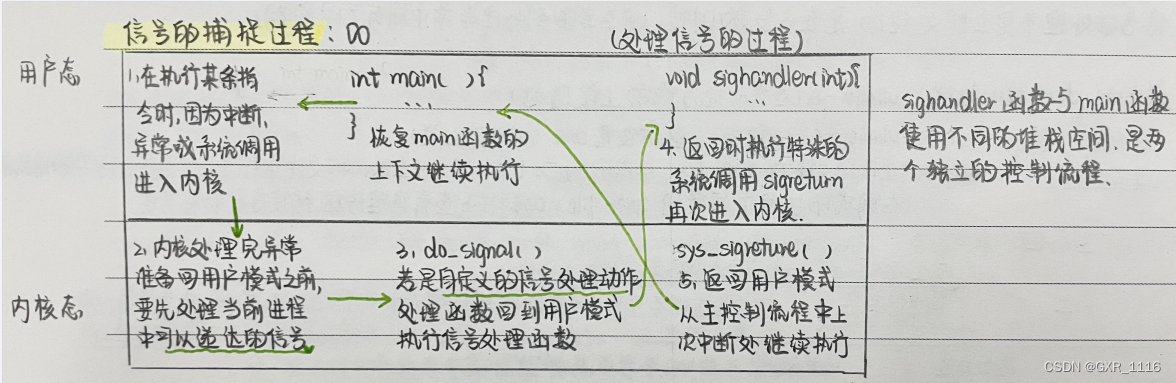 信号的捕捉过程：DO
(处理信号的过程)
用户态
1.在执行某条指
令时,因为中断,
异常或系统调用
进入内核
int main( ){
...
}
恢复main函数的
上下文继续执行
void sighandler(int){
...
}
4.返回时执行特殊的
系统调用sigreturn
再次进入内核.
sighandler函数与main函数
使用不同的堆栈空间.是两
个独立的控制流程.
内核态
2.内核处理完异常
准备回用户模式之前,
要先处理当前进程
中可以递达的信号
3. do_signal( )
若是自定义的信号处理动作
处理函数回到用户模式
执行信号处理函数
sys_sigreture( )
5.返回用户模式
从主控制流程中上
次中断处继续执行
CSDN @GXR_1116